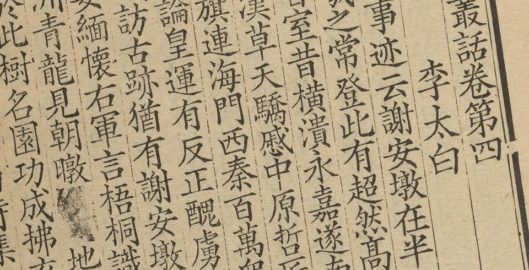 叢話卷第四
李太白
事迹云謝安墩在半
之常登此有超然高
室昔橫潰永嘉遂南
漢草天驕蹙中原哲匠
旗連海門西秦百萬眾
論皇運有反正醜虜
訪古跡猶有謝安墩
姿緬懷右軍言梧桐識
洲青龍見朝暾 地
於此樹名園功成拂衣
詩集